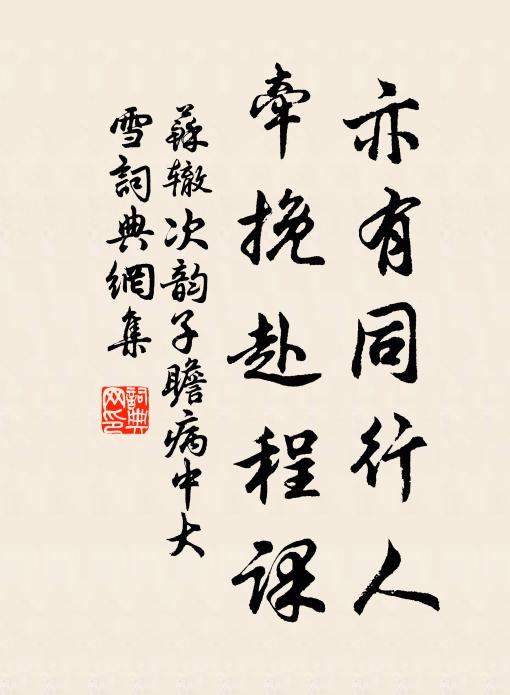 亦有同行人
牽挽赴程課
蘇辙次韵子瞻病中大
雪詞典網集
詞典
网印